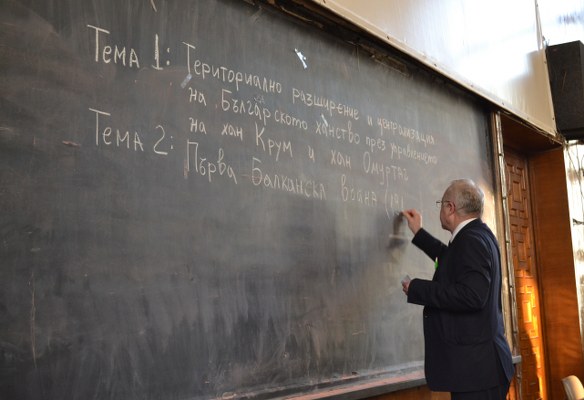 Тема 1: Териториално разширение и централизация
на Българското ханство през управлението
на хан Крум и хан Омуртаг
Тема 2: Първа Балканска война (191